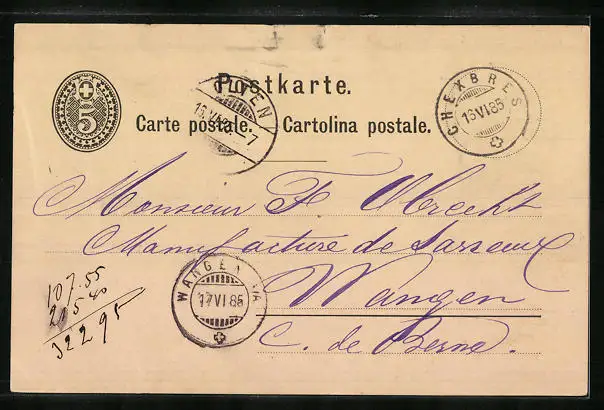 Postkarte.
5
Carte postale. Cartolina postale.
CHEXBRES
16 VI 85
Monsieur F Obrecht
Manufacture de
Wangen
C. de Berne.
WANGEN
17 VI 85
107.55
215.40
322 95